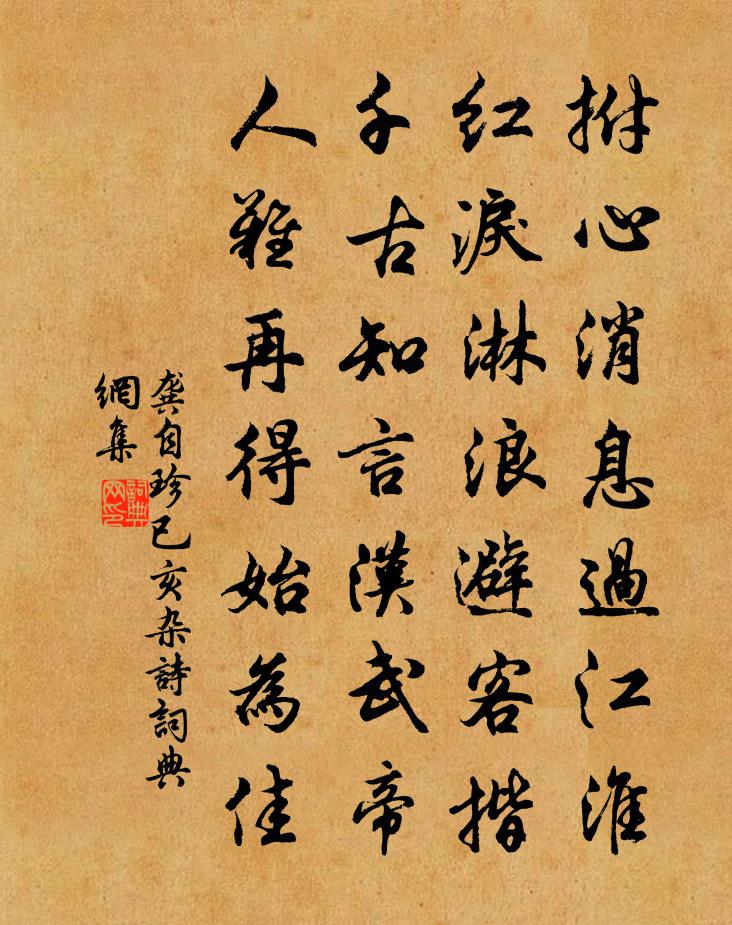 拊心消息過江淮
紅淚淋浪避客揩
千古知言漢武帝
人難再得始為佳
龔自珍已亥杂詩詞典
網集
詞典
网印